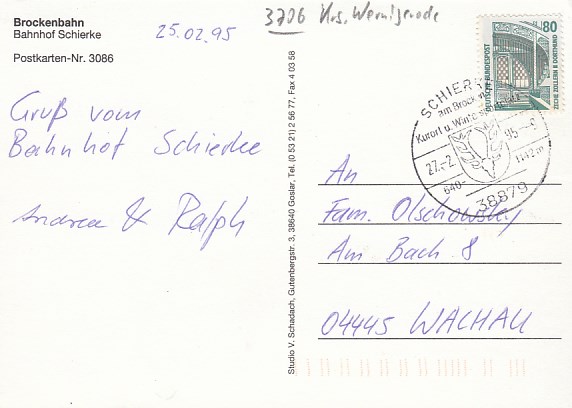 Brockenbahn
Bahnhof Schierke
Postkarten-Nr. 3086
25.02.95
Gruß vom
Bahnhof Schierke
Andrea & Ralph
Studio V. Schadach, Gutenbergstr. 3, 38640 Goslar, Tel. (0 53 21) 2 56 77, Fax 4 03 58
3706 Krs. Wernigerode
80
DEUTSCHE BUNDESPOST
ZECHE ZOLLERN II DORTMUND
SCHIERKE
am Brocken
Kurort u. Wintersportplatz
27.-2. 95.-9
640- 1142m
38879
An
Fam. Olschowsky
Am Bach 8
04445 WACHAU